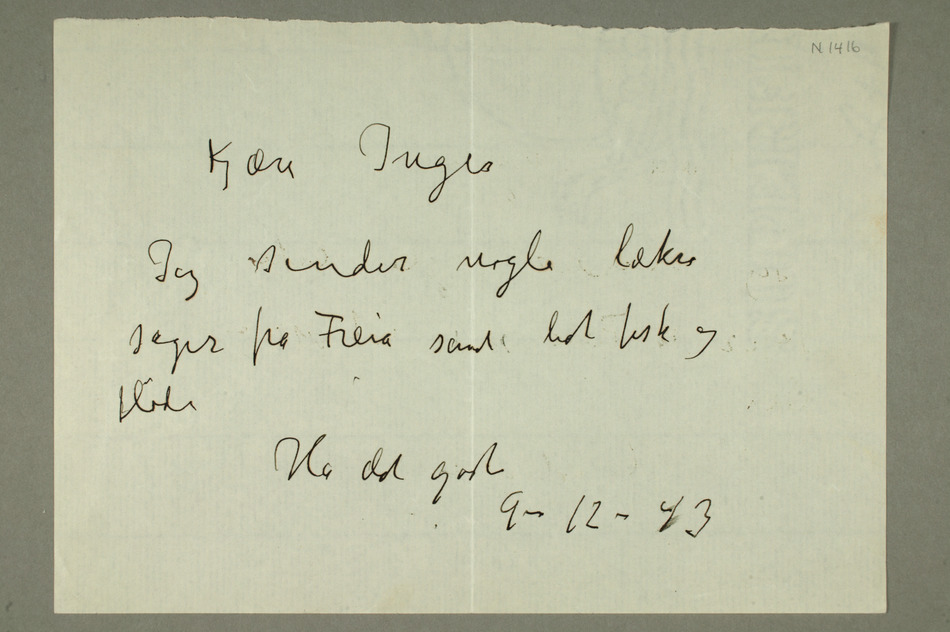 N 1416
Kjære Inger
Jeg sender nogle lækre
sager fra Freia samt lidt fisk og
fløde
Ha det godt
9 – 12 – 43